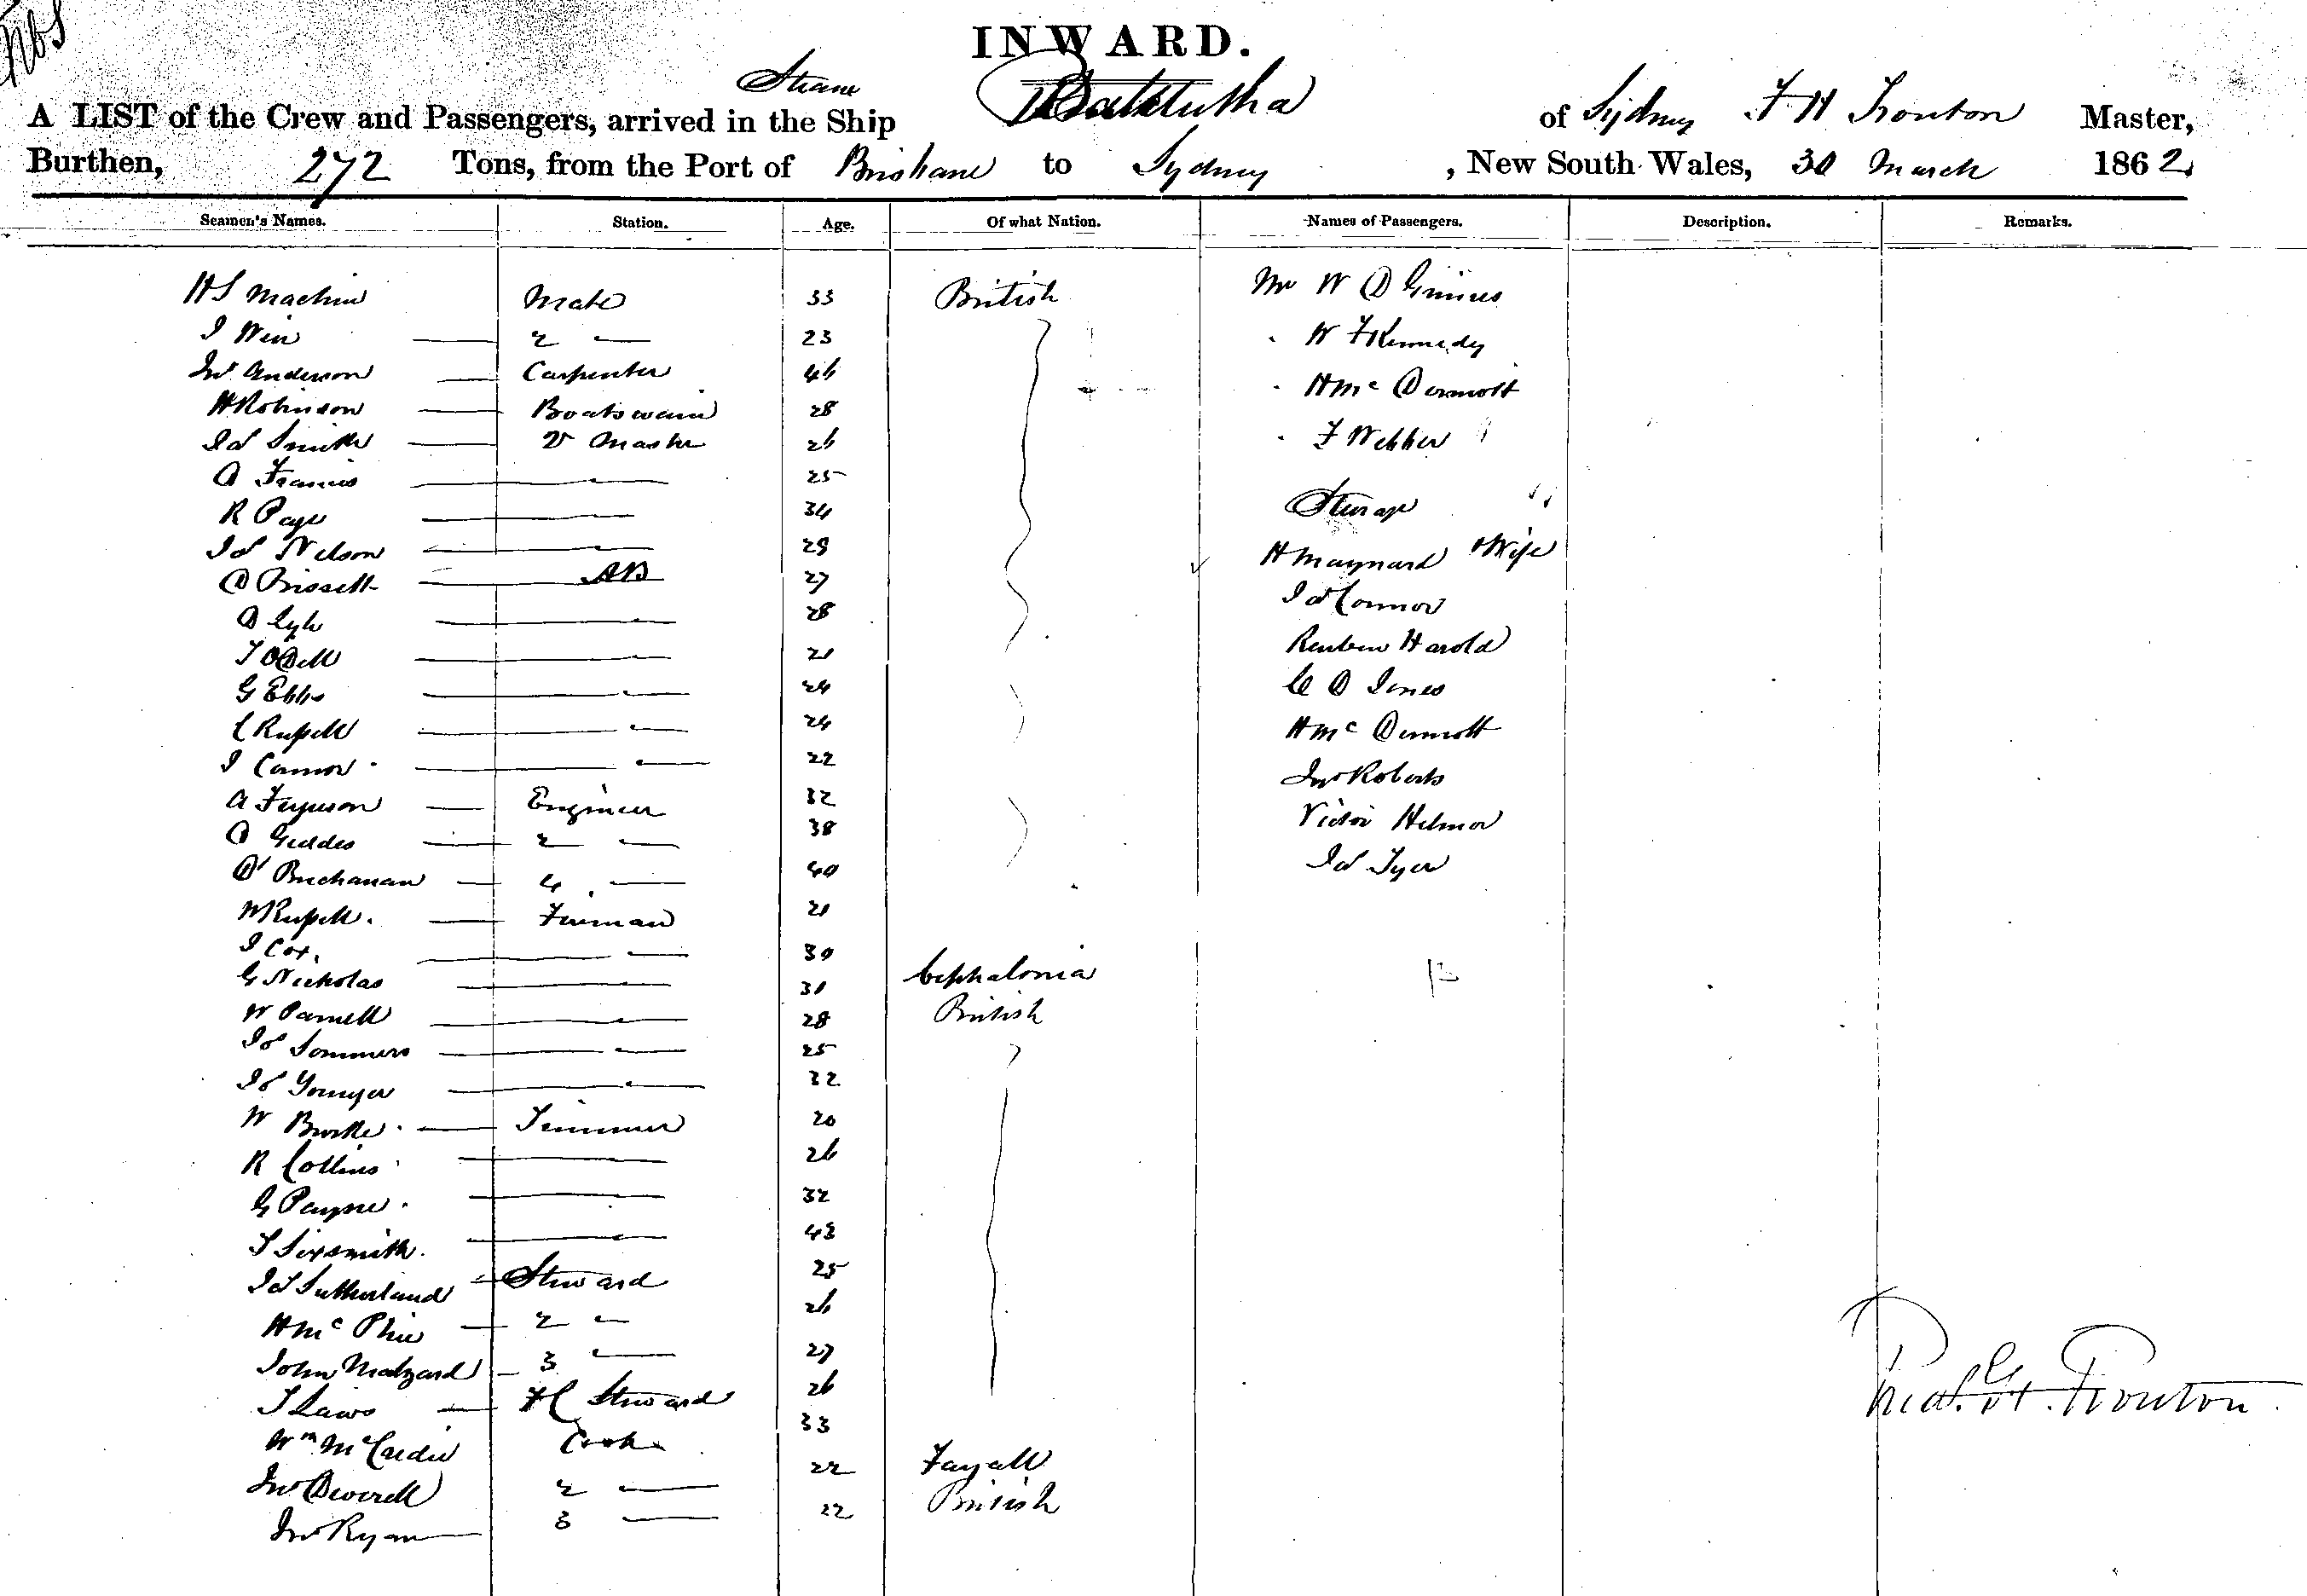 INWARD.
Steam
A LIST of the Crew and Passengers, arrived in the Ship of Sydney F H Trouton Master,
Burthen, 272 Tons, from the Port of Brisbane to Sydney , New South Wales, 30 March 1862
Seamen's Names. Station. Age. Of what Nation. Names of Passengers. Description. Remarks.
H S Machin Mate 33 British Mr W D
23 W F Kennedy
Jno Anderson Carpenter 46 H Mc Dermott
H Robinson Boatswain 28
Jas Smith Master 26 F Webber
A Francis 25
R Page 34 Sterage
Jas Nelson 29 H Maynard & Wife
D Bissett AB 27
D Lyle 28 J O'Connor
T Odell 21 Reuben Harold
G Ebbs 24 C D Jones
C Russell 24 H Mc Dermott
J Connor 22 Jno Roberts
A Ferguson Engineer 32 Victor Helmor
D Geddes 2 38
D Buchanan 4 40 Jas Tyer
W Russell Fireman 21
J Cox 30
G Nicholas 31 Cephalonia
W Parnell 28 British
Jas Sommers 25
Jas Younger 32
W Burke Trimmer 20
R Collins 26
G Payne 32
T Sixsmith 43
Jas Sutherland Steward 25
H Mc Phie 2 26
John Malzard 3 27
T Laws F C Steward 26
Wm McCardie Cook 33
Jno Deverell 2 22 Fayall
Jno Ryan 3 22 British
Fred. H. Trouton